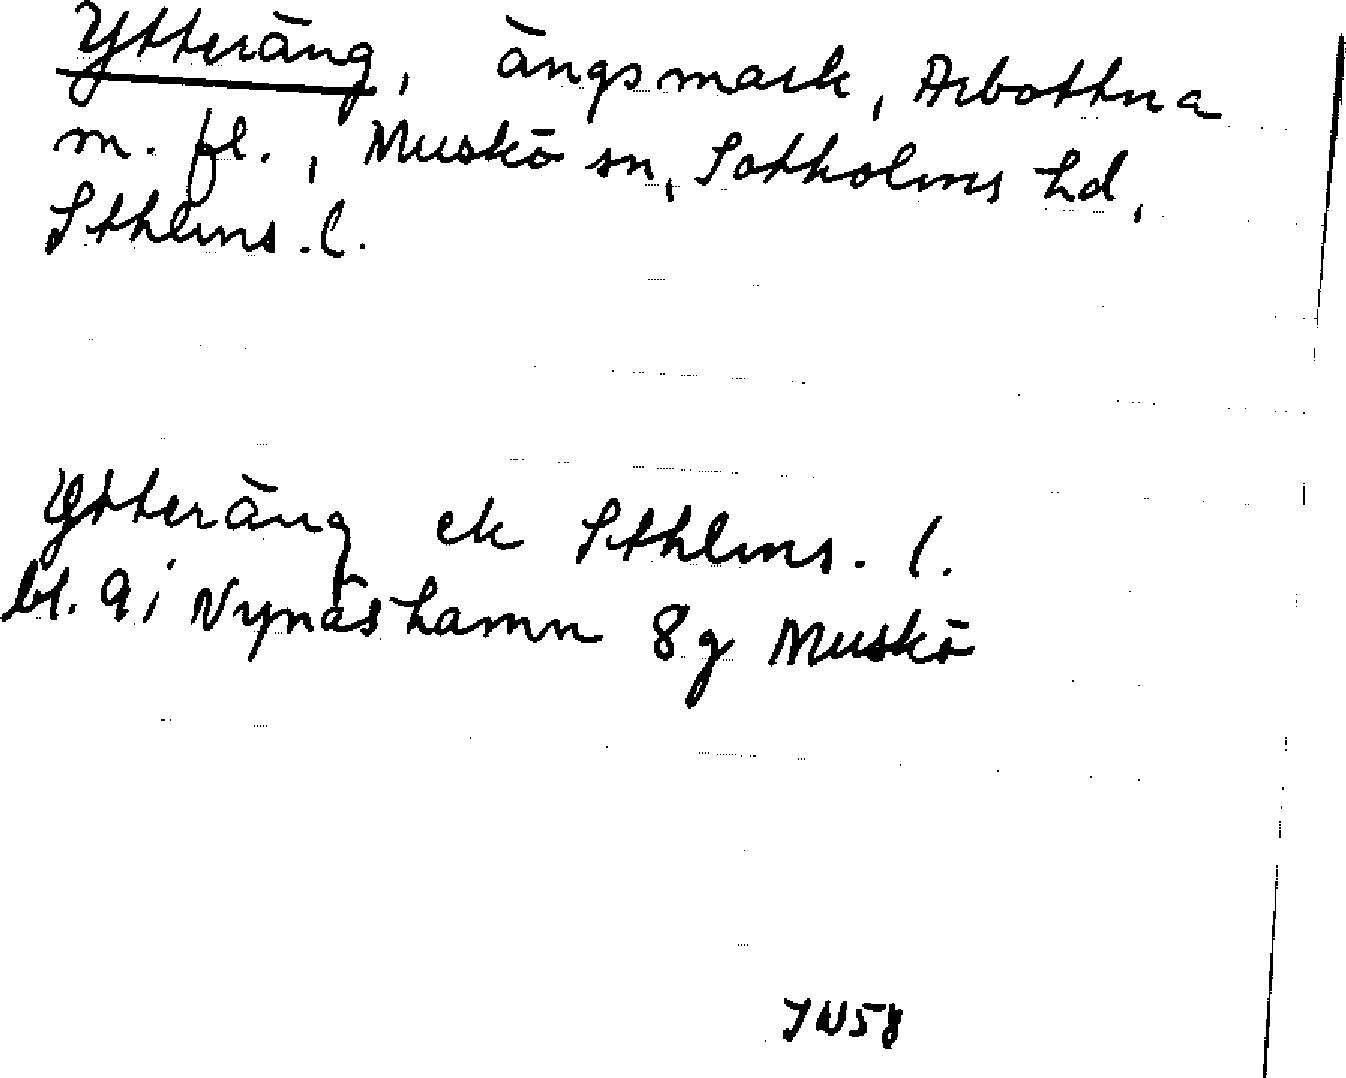 Ytteräng, ängsmark, Arbottna
m. fl., Muskö sn, Sotholms hd,
Sthlms. l.
Ytteräng ek Sthlms. l.
bl. 9 i Nynäshamn 8g Muskö
JN58